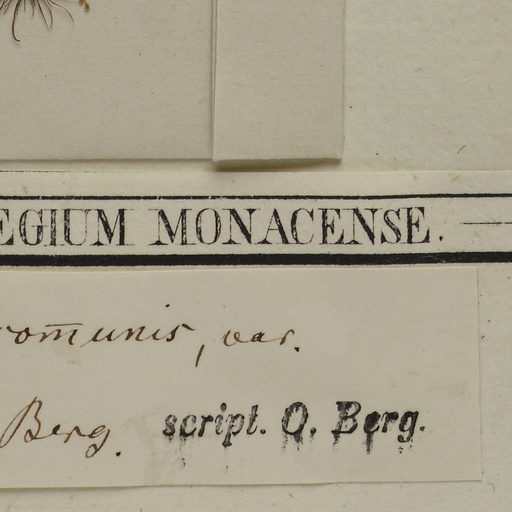 EGIUM MONACENSE.
com̄unis, var.
Berg. script. O. Berg.